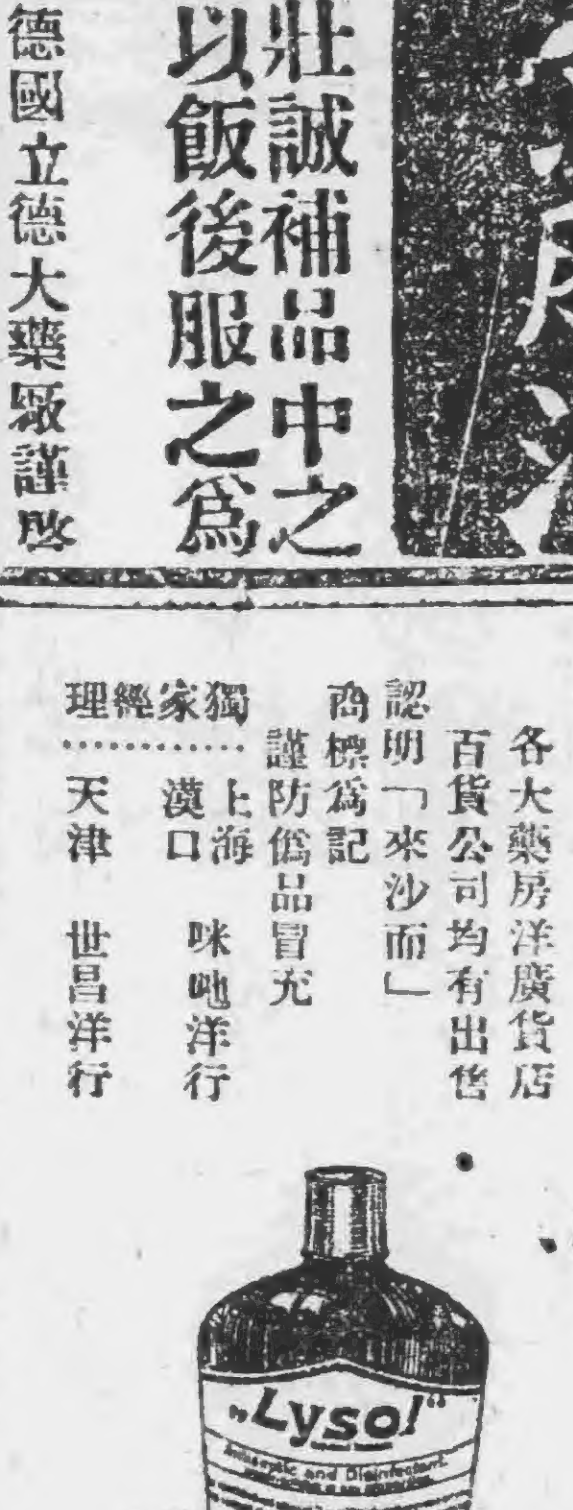 壯誠補品中之
以飯後服之爲
德國立德大藥厰謹啟
各大藥房洋廣貨店
百貨公司均有出售
認明「來沙而」
商標爲記
謹防僞品冒充
獨家經理
上海
漢口
咪吔洋行
天津 世昌洋行
„Lysol“
Antiseptic and Disinfectant